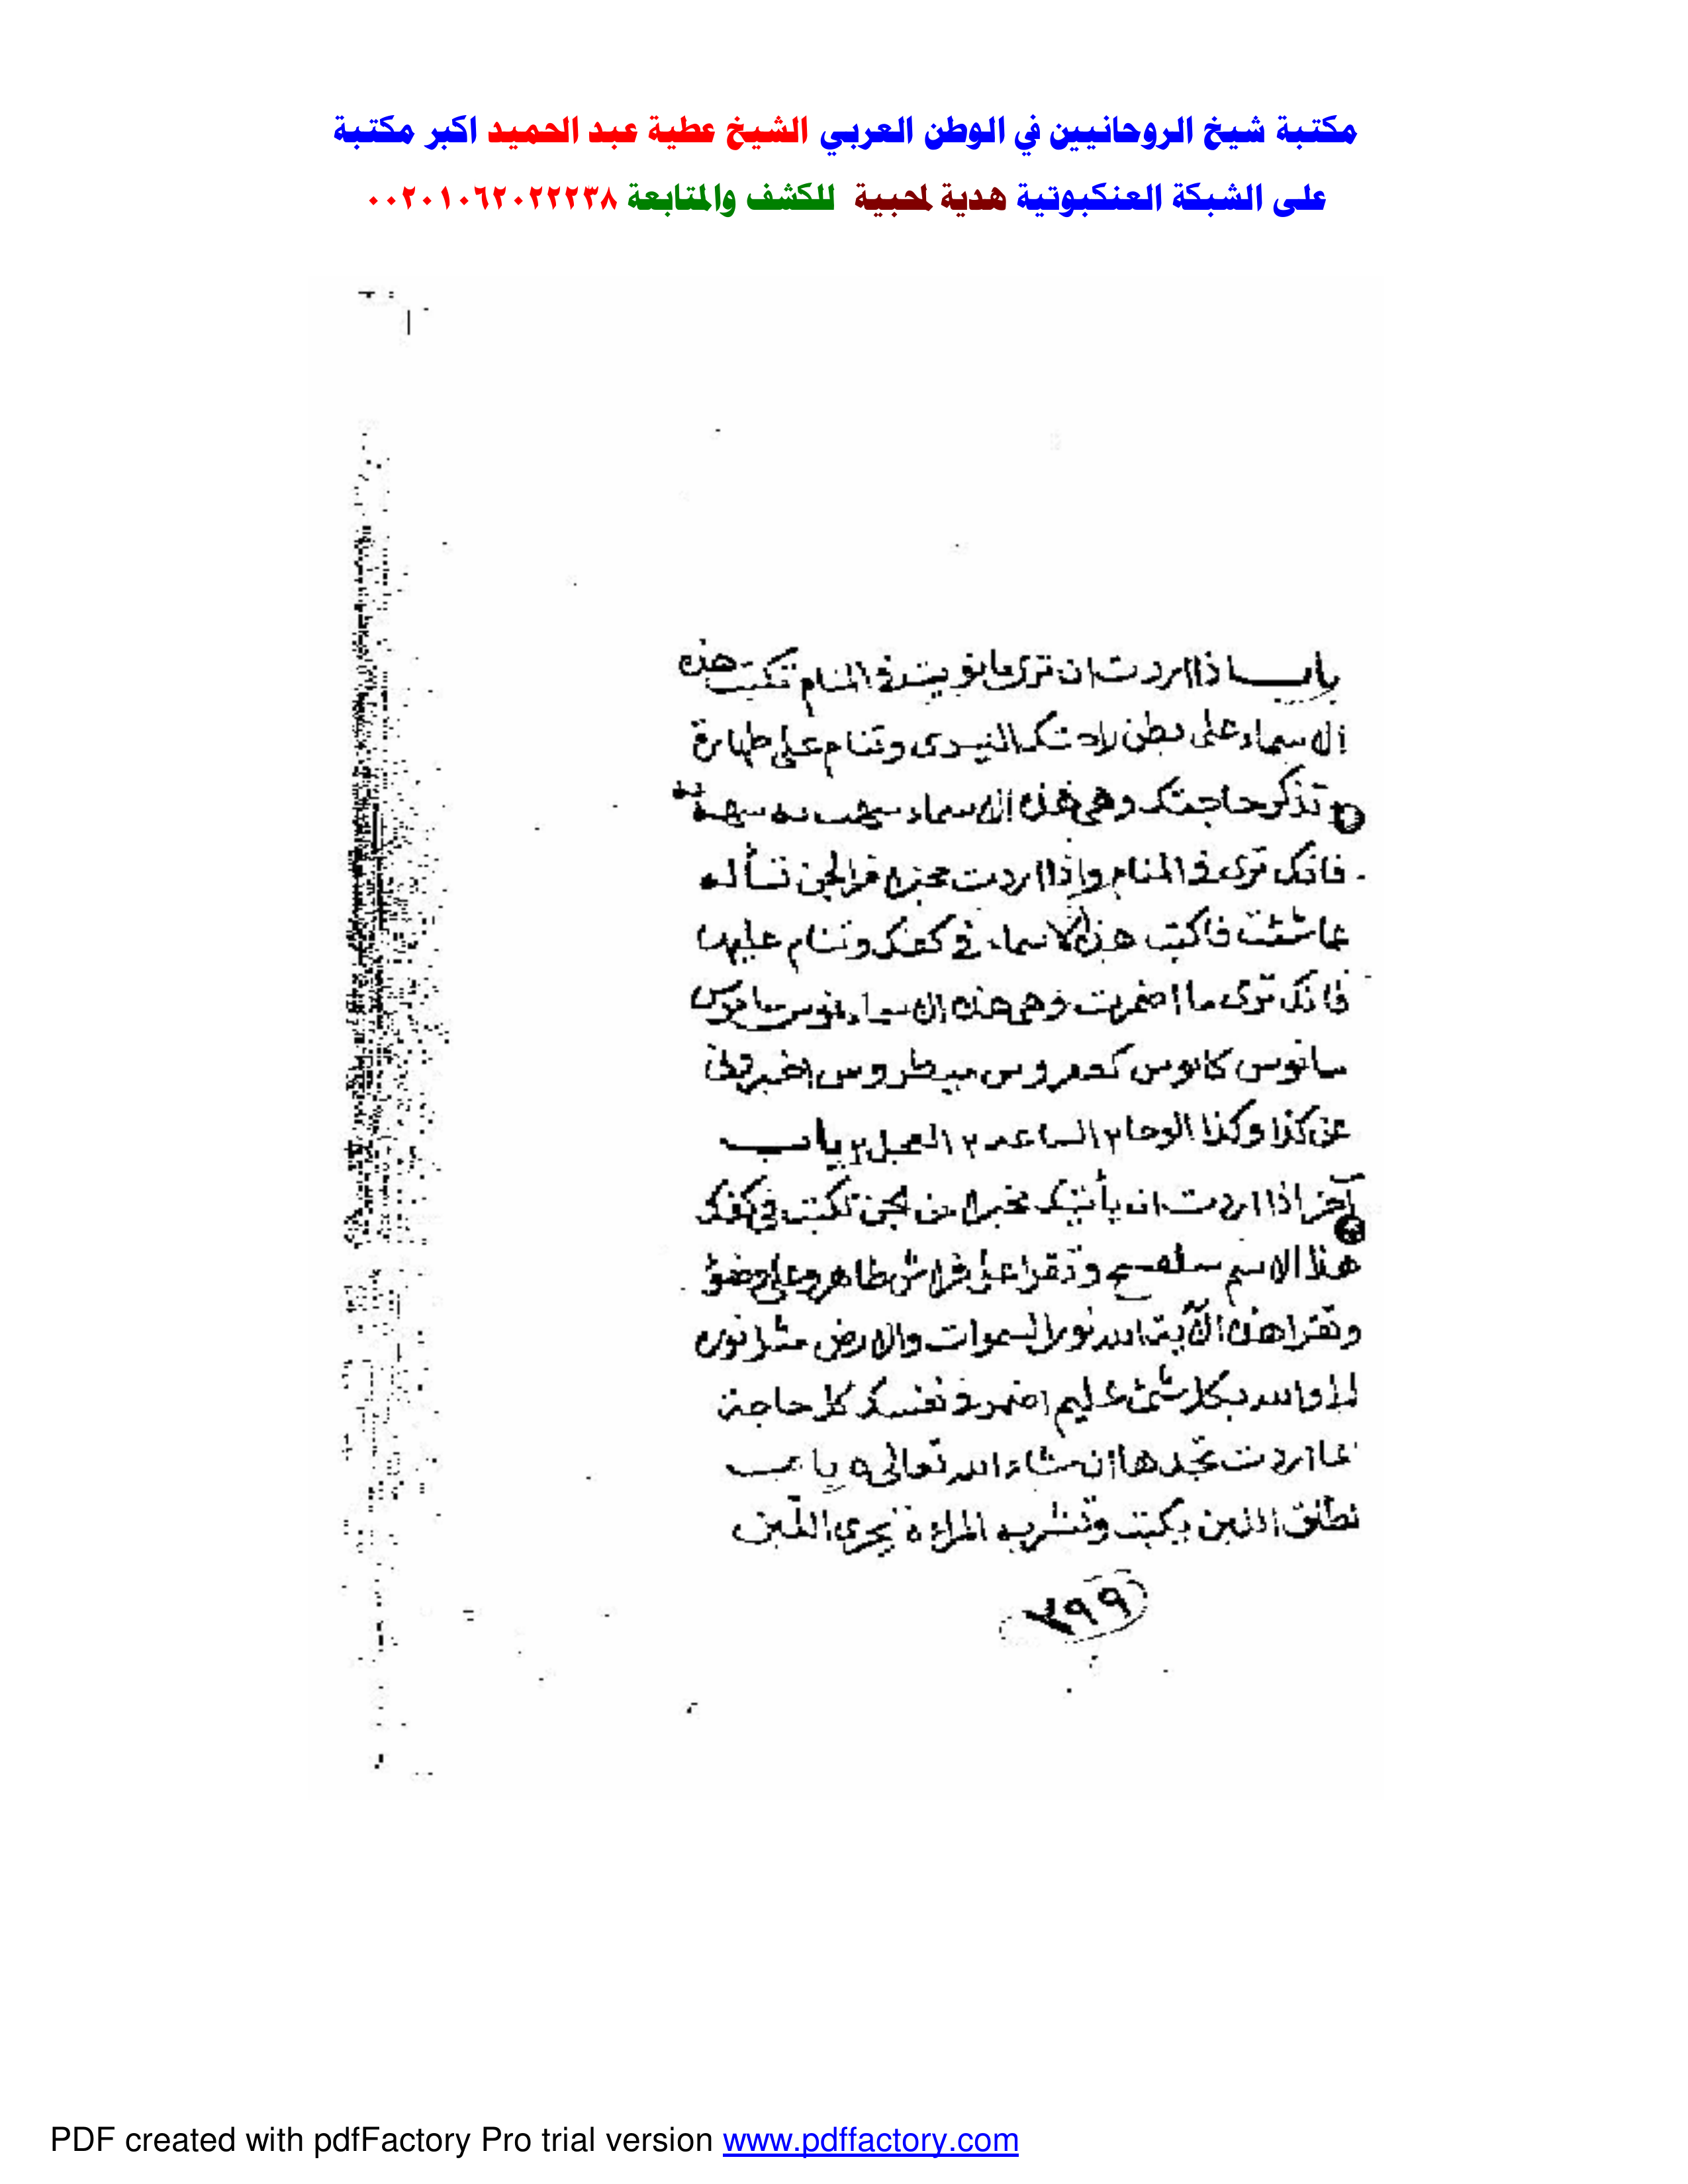 مكتبة شيخ الروحانيين في الوطن العربي الشيخ عطية عبد الحميد اكبر مكتبة
على الشبكة العنكبوتية هدية لمحبية للكشف والمتابعة ٠٠٢٠١٠٦٢٠٢٢٢٣٨
باب اذا اردت ان ترى ما نويته في المنام تكتب هذه
الاسماء على بطن راحتك اليسرى وتنام على طهارة
وتذكر حاجتك وهي هذه الاسماء
فانك ترى في المنام واذا اردت مخبرا من الجن تسأله
عما شئت فاكتب هذه الاسماء في كفك وتنام عليها
فانك ترى ما اضمرت وهي هذه الاسماء
سانوس كانوس اخبروني
عن كذا وكذا الوحا ٢ الساعه ٢ العجل ٢ باب
آخر اذا اردت ان يأتيك مخبرا من الجن تكتب في كفك
هذا الاسم وتقرا على فراش طاهر وعلى وضؤ
وتقرا هذه الآية الله نور السموات والارض مثل نوره
الى والله بكل شئ عليم اضمر في نفسك كل حاجة
عما اردت تجدها ان شاء الله تعالى ه باب
نطلق اللبن يكتب وتشربه المراءة يجرى اللبن
٣٩٩
PDF created with pdfFactory Pro trial version www.pdffactory.com